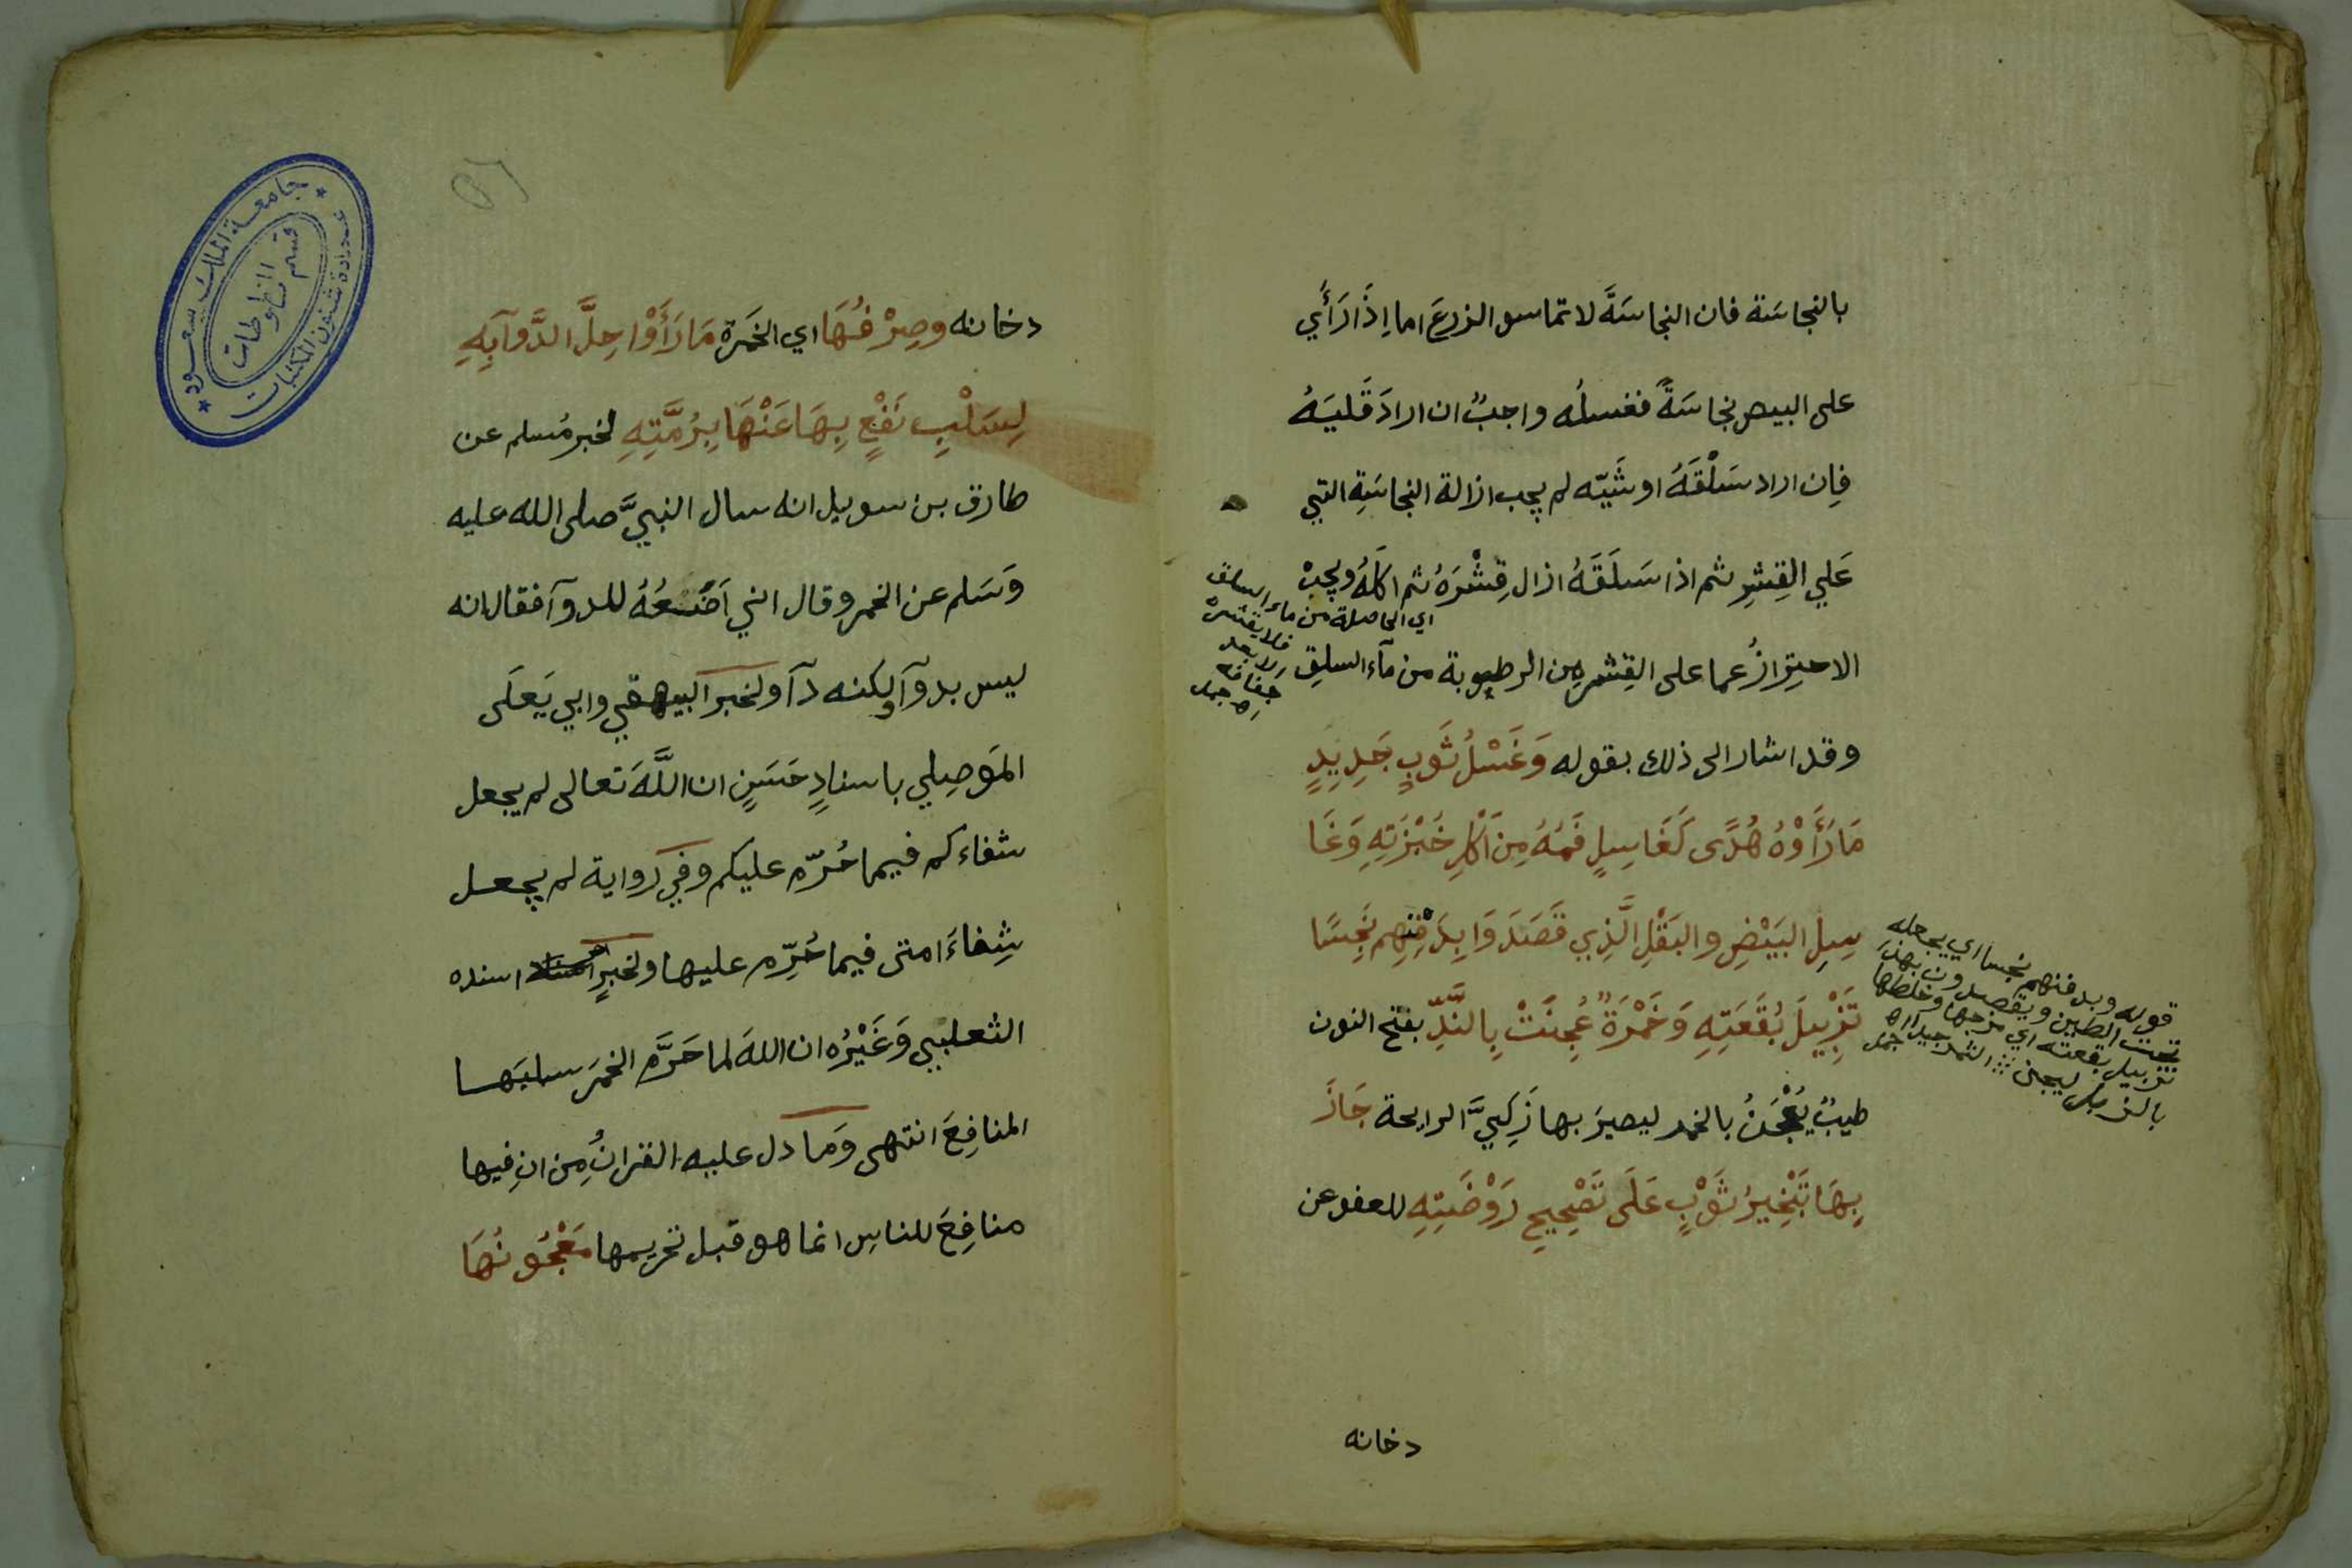 بالنجاسَة فان النجاسَةَ لا تماسو الزرعَ اما اِذَا رَأَي
على البيض نجاسَةً فغسلُه واجبٌ ان ارادَ قَليَهُ
فاِن اراد سَلْقَهُ او شَيّه لم يجب ازالة النجاسَةِ التي
عَلي القِشرِ ثم اذا سَلَقَهُ ازال قِشْرَهُ ثم اكلَهُ ويجبْ
الاحتِرازُ عما على القِشرِ مِن الرطوبة من مآء السلقِ
اي الحاصلة من ماء السلق
فلا يقشره
اه جمل
وقد اشار الى ذلك بقوله وَغَسْلُ ثَوبٍ جَدِيدٍ
مَا رَأَوْهُ هُدًى كَغَاسِلٍ فَمَهُ مِنَ اَكْلِ خُبْزَتِهِ وَغَا
سِلِ البَيْضِ والبَقْلِ الَّذِي قَصَدَوَا بِدَفْنِهِم نَجِسًا
تَزْبِيلَ بُقْعَتِهِ وَخَمْرَةٌ عُجِنَتْ بِالنَّدِّ بفتح النون
طيبٌ يُعْجَنُ بالخمر ليصيرَ بها زَكِيَّ الرايحة جَازَ
بِهَا تَبْخِيرُ ثَوْبٍ عَلَى تَصْحِيحِ رَوْضَتِهِ للعفو عن
قوله وبدفنهم نجسا اي يجعله
تحت الطين ويقصدون بهذا
تزبيل بقعته اي مزجها وخلطها
بالزبل ليجئ الثمر جيدا اه جمل
دخانه
دخانه وصِرْفُهَا اي الخَمرَة مَا رَأَوْا حِلَّ الدَّوآبِهِ
لِسَلْبِ نَفْعٍ بِهَا عَنْهَا بِرُمَّتِهِ لخبر مُسلم عن
طارق بن سويل انه سال النبيَّ صلى الله عليه
وَسَلم عن الخمر وقال اني اَصْنَعُهُ للدوآ فقال انه
ليس بدوآ ولكنه دآ ولخبر البيهقي وابي يَعلَى
المَوصِلي باسنادٍ حَسَنٍ ان اللَّهَ تعالى لم يجعل
شفاءكم فيما حُرّم عليكم وفي رواية لم يجعل
شِفاءَ امتى فيما حُرِّم عليها ولخبرٍ اسنده
الثعلبي وَغَيْرُه ان اللهَ لما حَرَّم الخمرَ سلبَها
المنافِعَ انتهى وَما دل عليه القرانُ مِن انِ فيها
منافِعَ للناسِ انما هو قبل تحريمها مَعْجُونُهَا
جامعة الملك سعود
قسم المخطوطات
عمادة شئون المكتبات